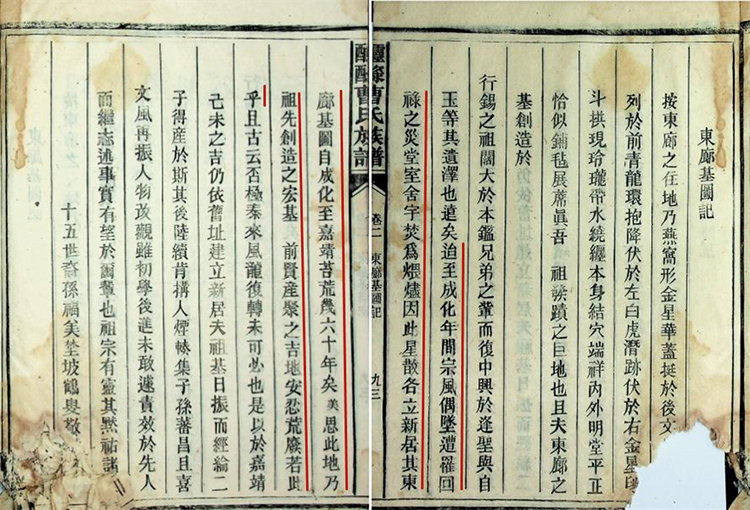 東廊基圖記
按東廊之在地乃燕窩形金星華蓋挺於後文
列於前青龍環抱降伏於左白虎潛跡伏於右金星印
斗拱現玲瓏帶水繞纏本身結穴端祥內外明堂平正
恰似鋪毡展席眞吾 祖發蹟之巨地也且夫東廊之
基創造於
行錫之祖闊大於本鑑兄弟之輩而復中興於逢聖與自
玉等其遺澤也遠矣迨至成化年間宗風偶墜遭罹回
祿之災堂室舍宇焚爲煨燼因此星散各立新居其東
醽醁曹氏族譜
卷二 東廊基圖記
九三
廊基圖自成化至嘉靖苦荒幾六十年矣美思此地乃
祖先創造之宏基 前賢産聚之吉地安忍荒廢若此
乎且古云否極泰來風龍復轉未可必也是以於嘉靖
己未之吉仍依舊址建立新居夫祖基日振而經綸二
子得産於斯其後陸續肯搆人煙輳集子孫蕃昌且喜
文風再振人物改觀雖初學後進未敢遽責效於先人
而繼志述事實有望於爾輩也祖宗有靈其默祐諸
十五世裔孫福美埜坡 叟敬